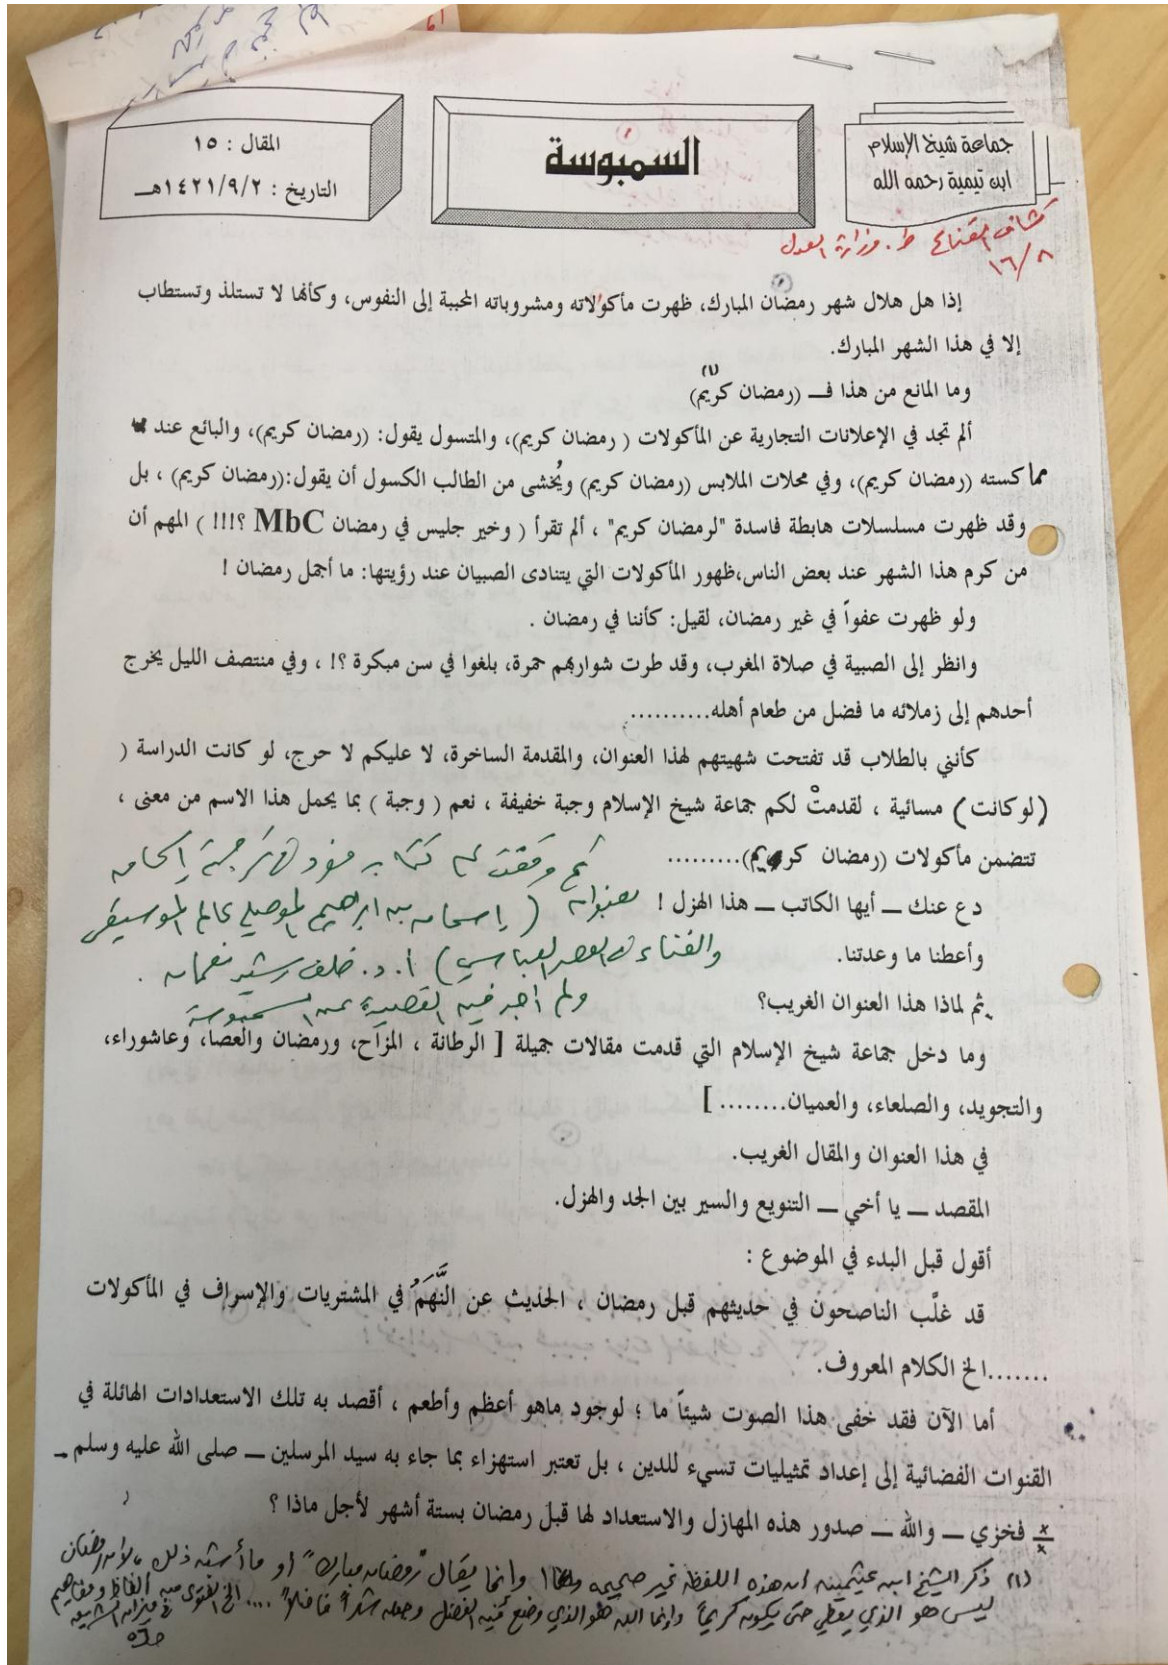 جماعة شيخ الإسلام
ابن تيمية رحمه الله
السمبوسة
المقال : ١٥
التاريخ : ١٤٢١/٩/٢هـ
كشاف القناع ط. وزارة العدل
١٦/٨
إذا هل هلال شهر رمضان المبارك، ظهرت مأكولاته ومشروباته المحببة إلى النفوس، وكأنها لا تستلذ وتستطاب
إلا في هذا الشهر المبارك.
وما المانع من هذا فــ (رمضان كريم) (١)
ألم تجد في الإعلانات التجارية عن المأكولات ( رمضان كريم)، والمتسول يقول: (رمضان كريم)، والبائع عند
مماكسته (رمضان كريم)، وفي محلات الملابس (رمضان كريم) ويُخشى من الطالب الكسول أن يقول:(رمضان كريم) ، بل
وقد ظهرت مسلسلات هابطة فاسدة "لرمضان كريم" ، ألم تقرأ ( وخير جليس في رمضان MbC ؟!!! ) المهم أن
من كرم هذا الشهر عند بعض الناس،ظهور المأكولات التي يتنادى الصبيان عند رؤيتها: ما أجمل رمضان !
ولو ظهرت عفواً في غير رمضان، لقيل: كأننا في رمضان .
وانظر إلى الصبية في صلاة المغرب، وقد طرت شواربهم حمرة، بلغوا في سن مبكرة ؟! ، وفي منتصف الليل يخرج
أحدهم إلى زملائه ما فضل من طعام أهله..........
كأنني بالطلاب قد تفتحت شهيتهم لهذا العنوان، والمقدمة الساخرة، لا عليكم لا حرج، لو كانت الدراسة (
(لو كانت) مسائية ، لقدمتْ لكم جماعة شيخ الإسلام وجبة خفيفة ، نعم ( وجبة ) بما يحمل هذا الاسم من معنى ،
تتضمن مأكولات (رمضان كريم).........
ثم وقفت على كتاب مفرد في ترجمة إسحاق
دع عنك ــ أيها الكاتب ــ هذا الهزل !
بعنوان ( إسحاق بن ابراهيم الموصلي عالم الموسيقى
وأعطنا ما وعدتنا.
والغناء في العصر العباسي) أ. د. خلف رشيد نعمان .
ثم لماذا هذا العنوان الغريب؟
ولم أجد فيه القصيدة عن السمبوسة
وما دخل جماعة شيخ الإسلام التي قدمت مقالات جميلة [ الرطانة ، المزاح، ورمضان والعصا، وعاشوراء،
والتجويد، والصلعاء، والعميان........ ]
في هذا العنوان والمقال الغريب.
المقصد ــ يا أخي ــ التنويع والسير بين الجد والهزل.
أقول قبل البدء في الموضوع :
قد غلَّب الناصحون في حديثهم قبل رمضان ، الحديث عن النَّهَمُ في المشتريات والإسراف في المأكولات
.......الخ الكلام المعروف.
أما الآن فقد خفى هذا الصوت شيئاً ما ؛ لوجود ماهو أعظم وأطعم ، أقصد به تلك الاستعدادات الهائلة في
القنوات الفضائية إلى إعداد تمثيليات تسيء للدين ، بل تعتبر استهزاء بما جاء به سيد المرسلين ــ صلى الله عليه وسلم ــ
فخزي ــ والله ــ صدور هذه المهازل والاستعداد لها قبل رمضان بستة أشهر لأجل ماذا ؟
(١) ذكر الشيخ ابن عثيمين ان هذه اللفظة غير صحيحه وانما يقال "رمضان مبارك" او ما أشبه ذلك ، لان رمضان
ليس هو الذي يعطي حتى يكون كريماً وإنما الله هو الذي وضع فيه الفضل وجعله شهراً فاضلاً .... الخ الفتوى من ألفاظ ومفاهيم
في ميزان الشريعة